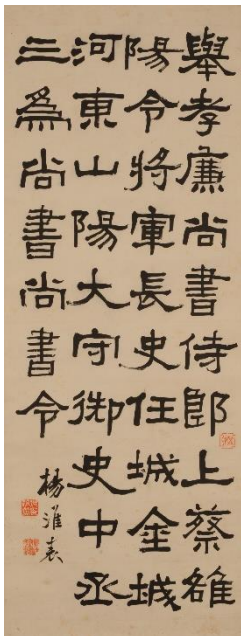 舉孝廉尚書侍郎上蔡雒
陽令將軍長史任城金城
河東山陽大守御史中丞
三爲尚書尚書令
楊淮表